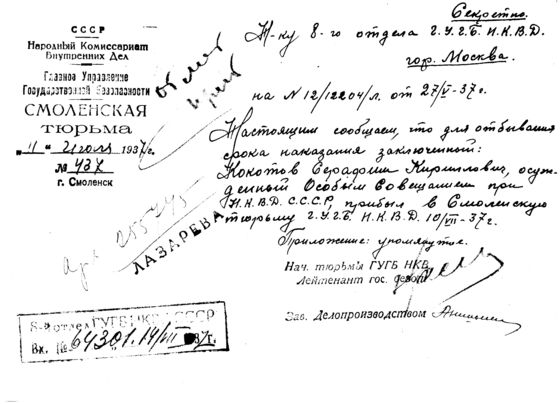 СССР
Народный Комиссариат
Внутренних Дел
Главное Управление
Государственной Безопасности
СМОЛЕНСКАЯ
тюрьма
"11" июля 1937г.
№ 437
г. Смоленск
Секретно.
Н-ку 8-го отдела Г.У.Г.Б. Н.К.В.Д.
гор. Москва.
на N 12/12204/л. от 27/V-37г.
Настоящим сообщаем, что для отбывания
срока наказания заключенный:
Кокотов Серафим Кириллович, осуж-
денный Особым Совещанием при
Н.К.В.Д. С.С.С.Р., прибыл в Смоленскую
тюрьму Г.У.Г.Б. Н.К.В.Д. 10/VII-37г.
Приложение: упомянутое.
Нач. тюрьмы ГУГБ НКВ
Лейтенант гос.
Зав. Делопроизводством
255245
ЛАЗАРЕВА
8-й отдел ГУГБ НКВД СССР
Вх. № 64301.14/VII 37г.